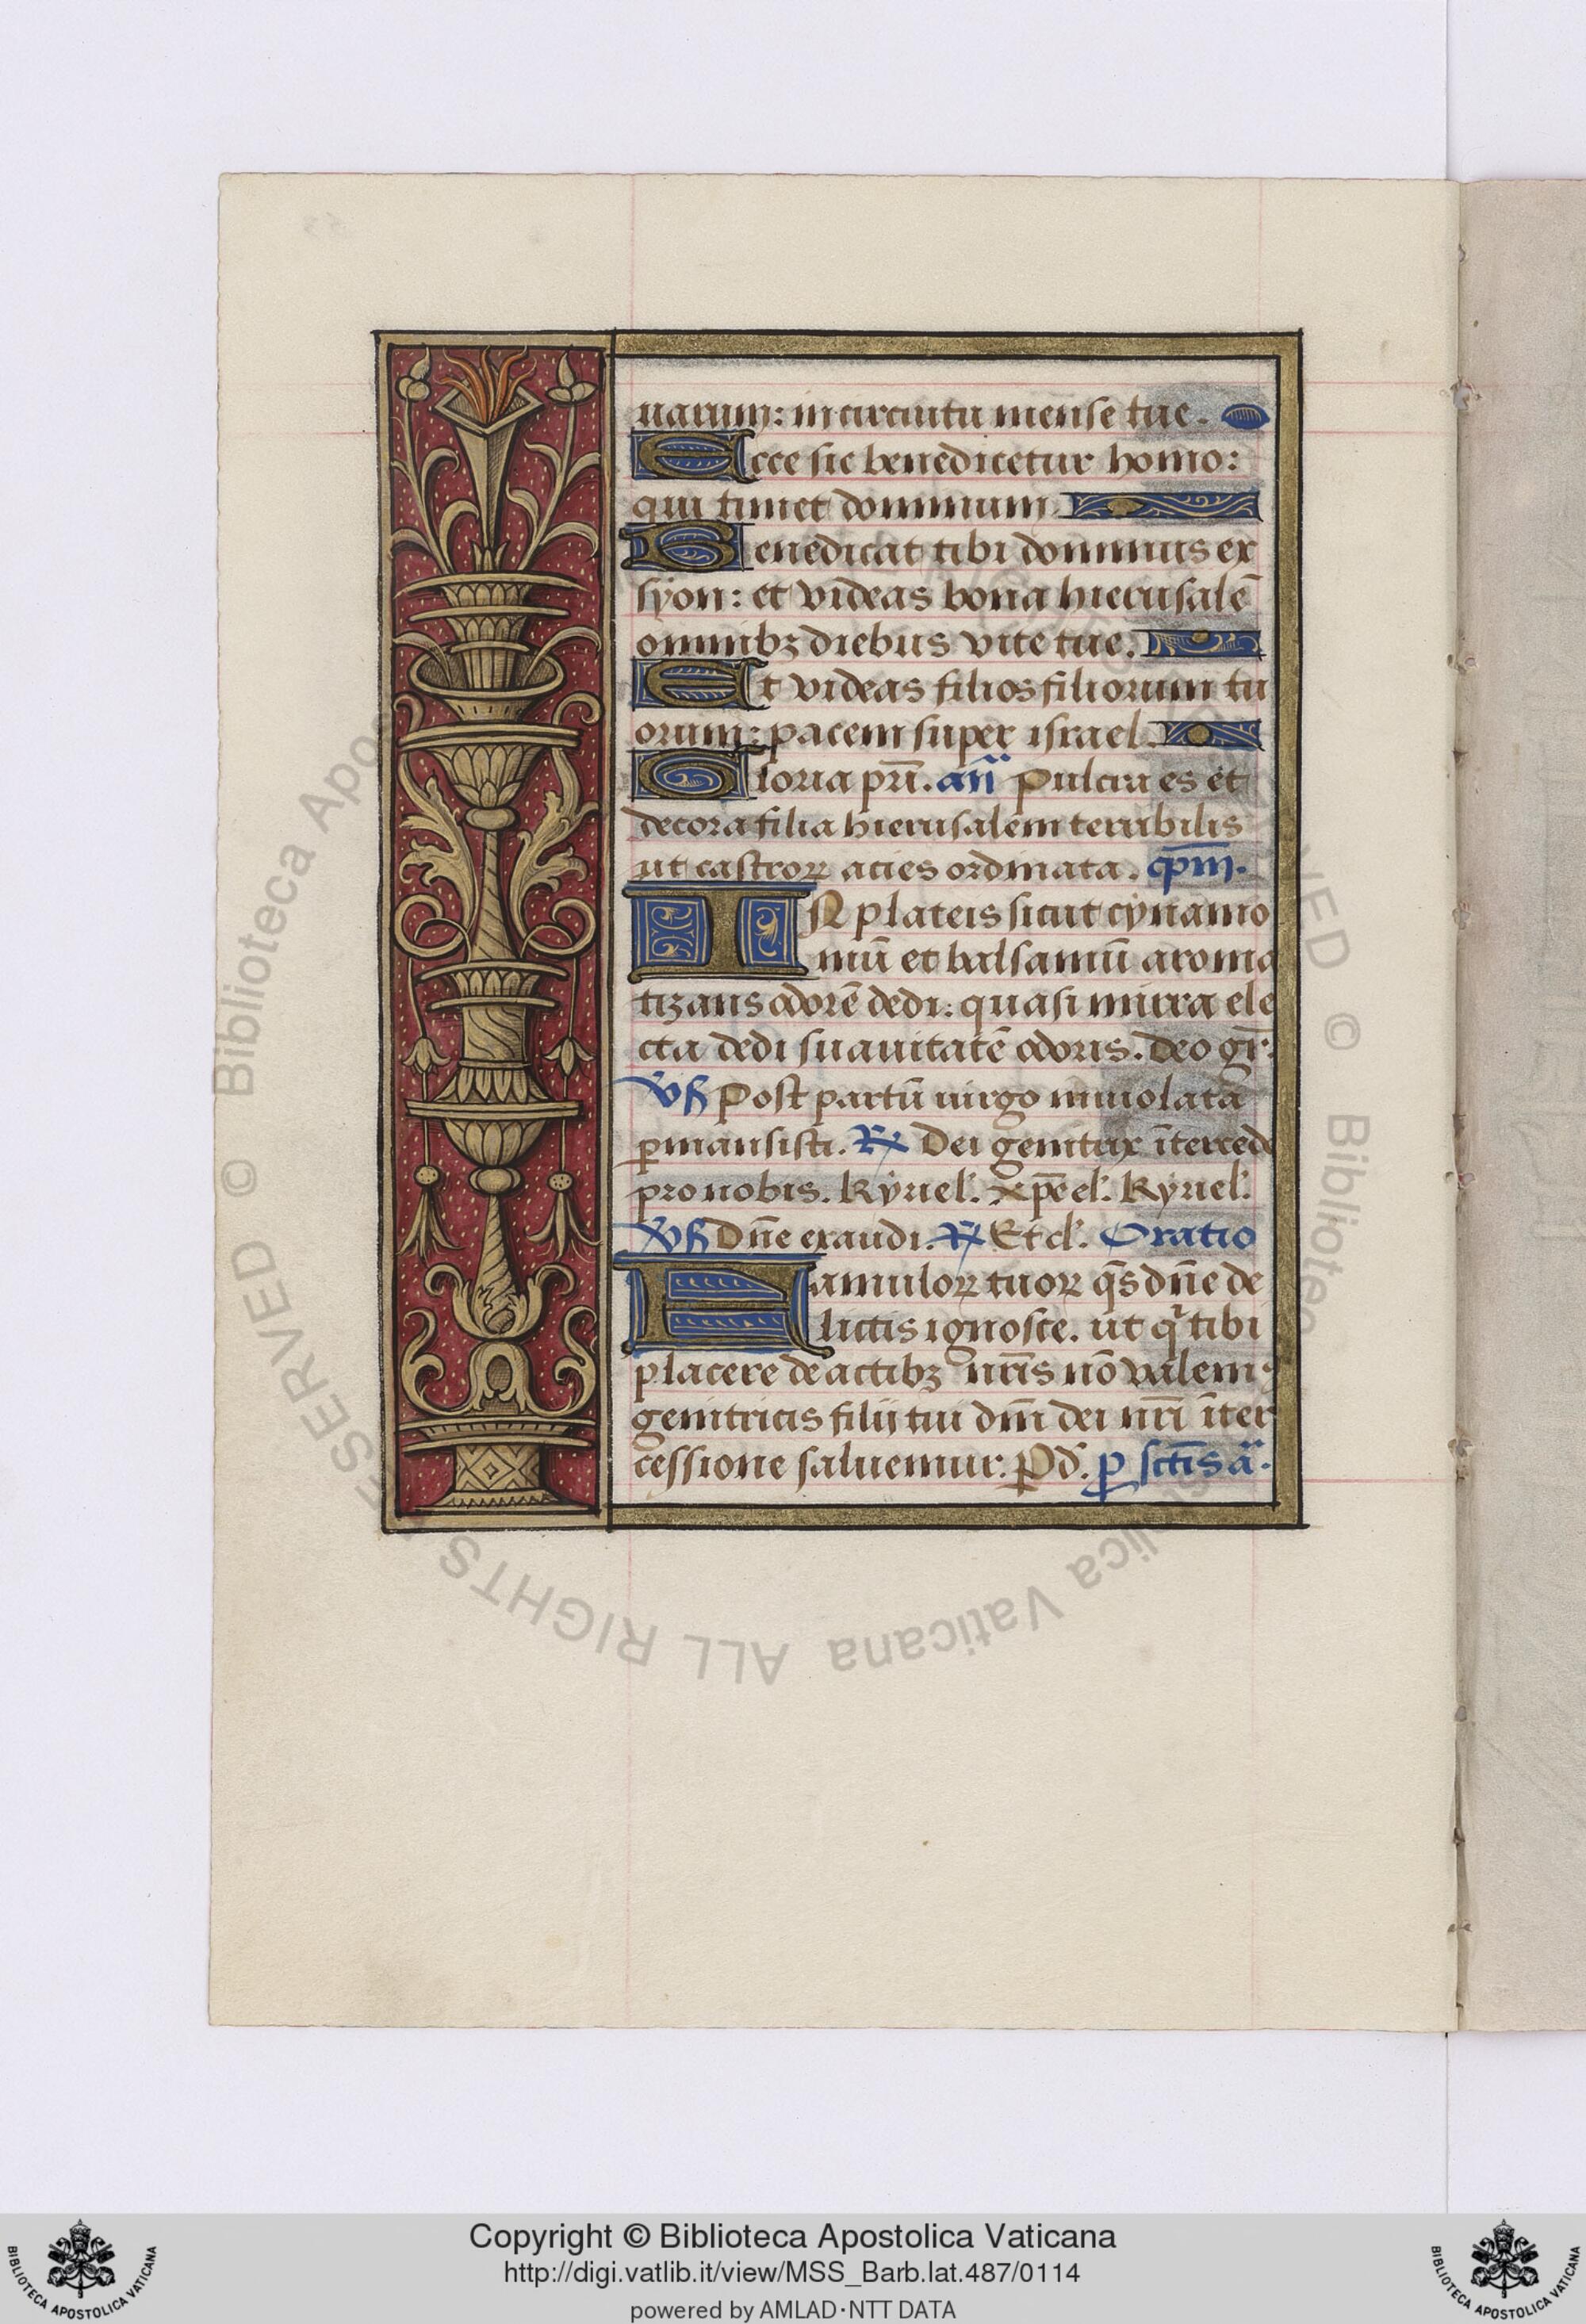 uarum: in circuitu mense tue.
Ecce sic benedicetur homo:
qui timet dominum
Benedicat tibi dominus ex
syon: et videas bona hierusalē
omnibꝫ diebus vite tue.
Et videas filios filiorum tu
orum: pacem super israel.
Gloria pri̅. an̅ Pulcra es et
decora filia hierusalem terribilis
ut castroꝝ acies ordinata. cp̅m.
IN plateis sicut cynamo
mū et balsamū aroma
tizans odorē dedi: quasi mirra ele
cta dedi suavitatē odoris. Deo gr̅.
℣ Post partū virgo inviolata
ꝑmansisti. ℟ Dei genitrix ītercede
pro nobis. Kyriel'. xp̅e el'. Kyriel'.
℣ Dn̅e exaudi. ℟ Et cl'. Oratio
Famuloꝝ tuoꝝ q̅s dn̅e de
lictis ignosce. ut qⁱ tibi
placere de actibꝫ nr̅is nō valemꝰ
genitricis filii tui dn̅i dei nr̅i īter
cessione salvemur. P d̅. ꝑ sct̅is a̅.
Copyright © Biblioteca Apostolica Vaticana
http://digi.vatlib.it/view/MSS_Barb.lat.487/0114
powered by AMLAD·NTT DATA
BIBLIOTECA APOSTOLICA VATICANA
BIBLIOTECA APOSTOLICA VATICANA
© Biblioteca Apostolica Vaticana ALL RIGHTS RESERVED